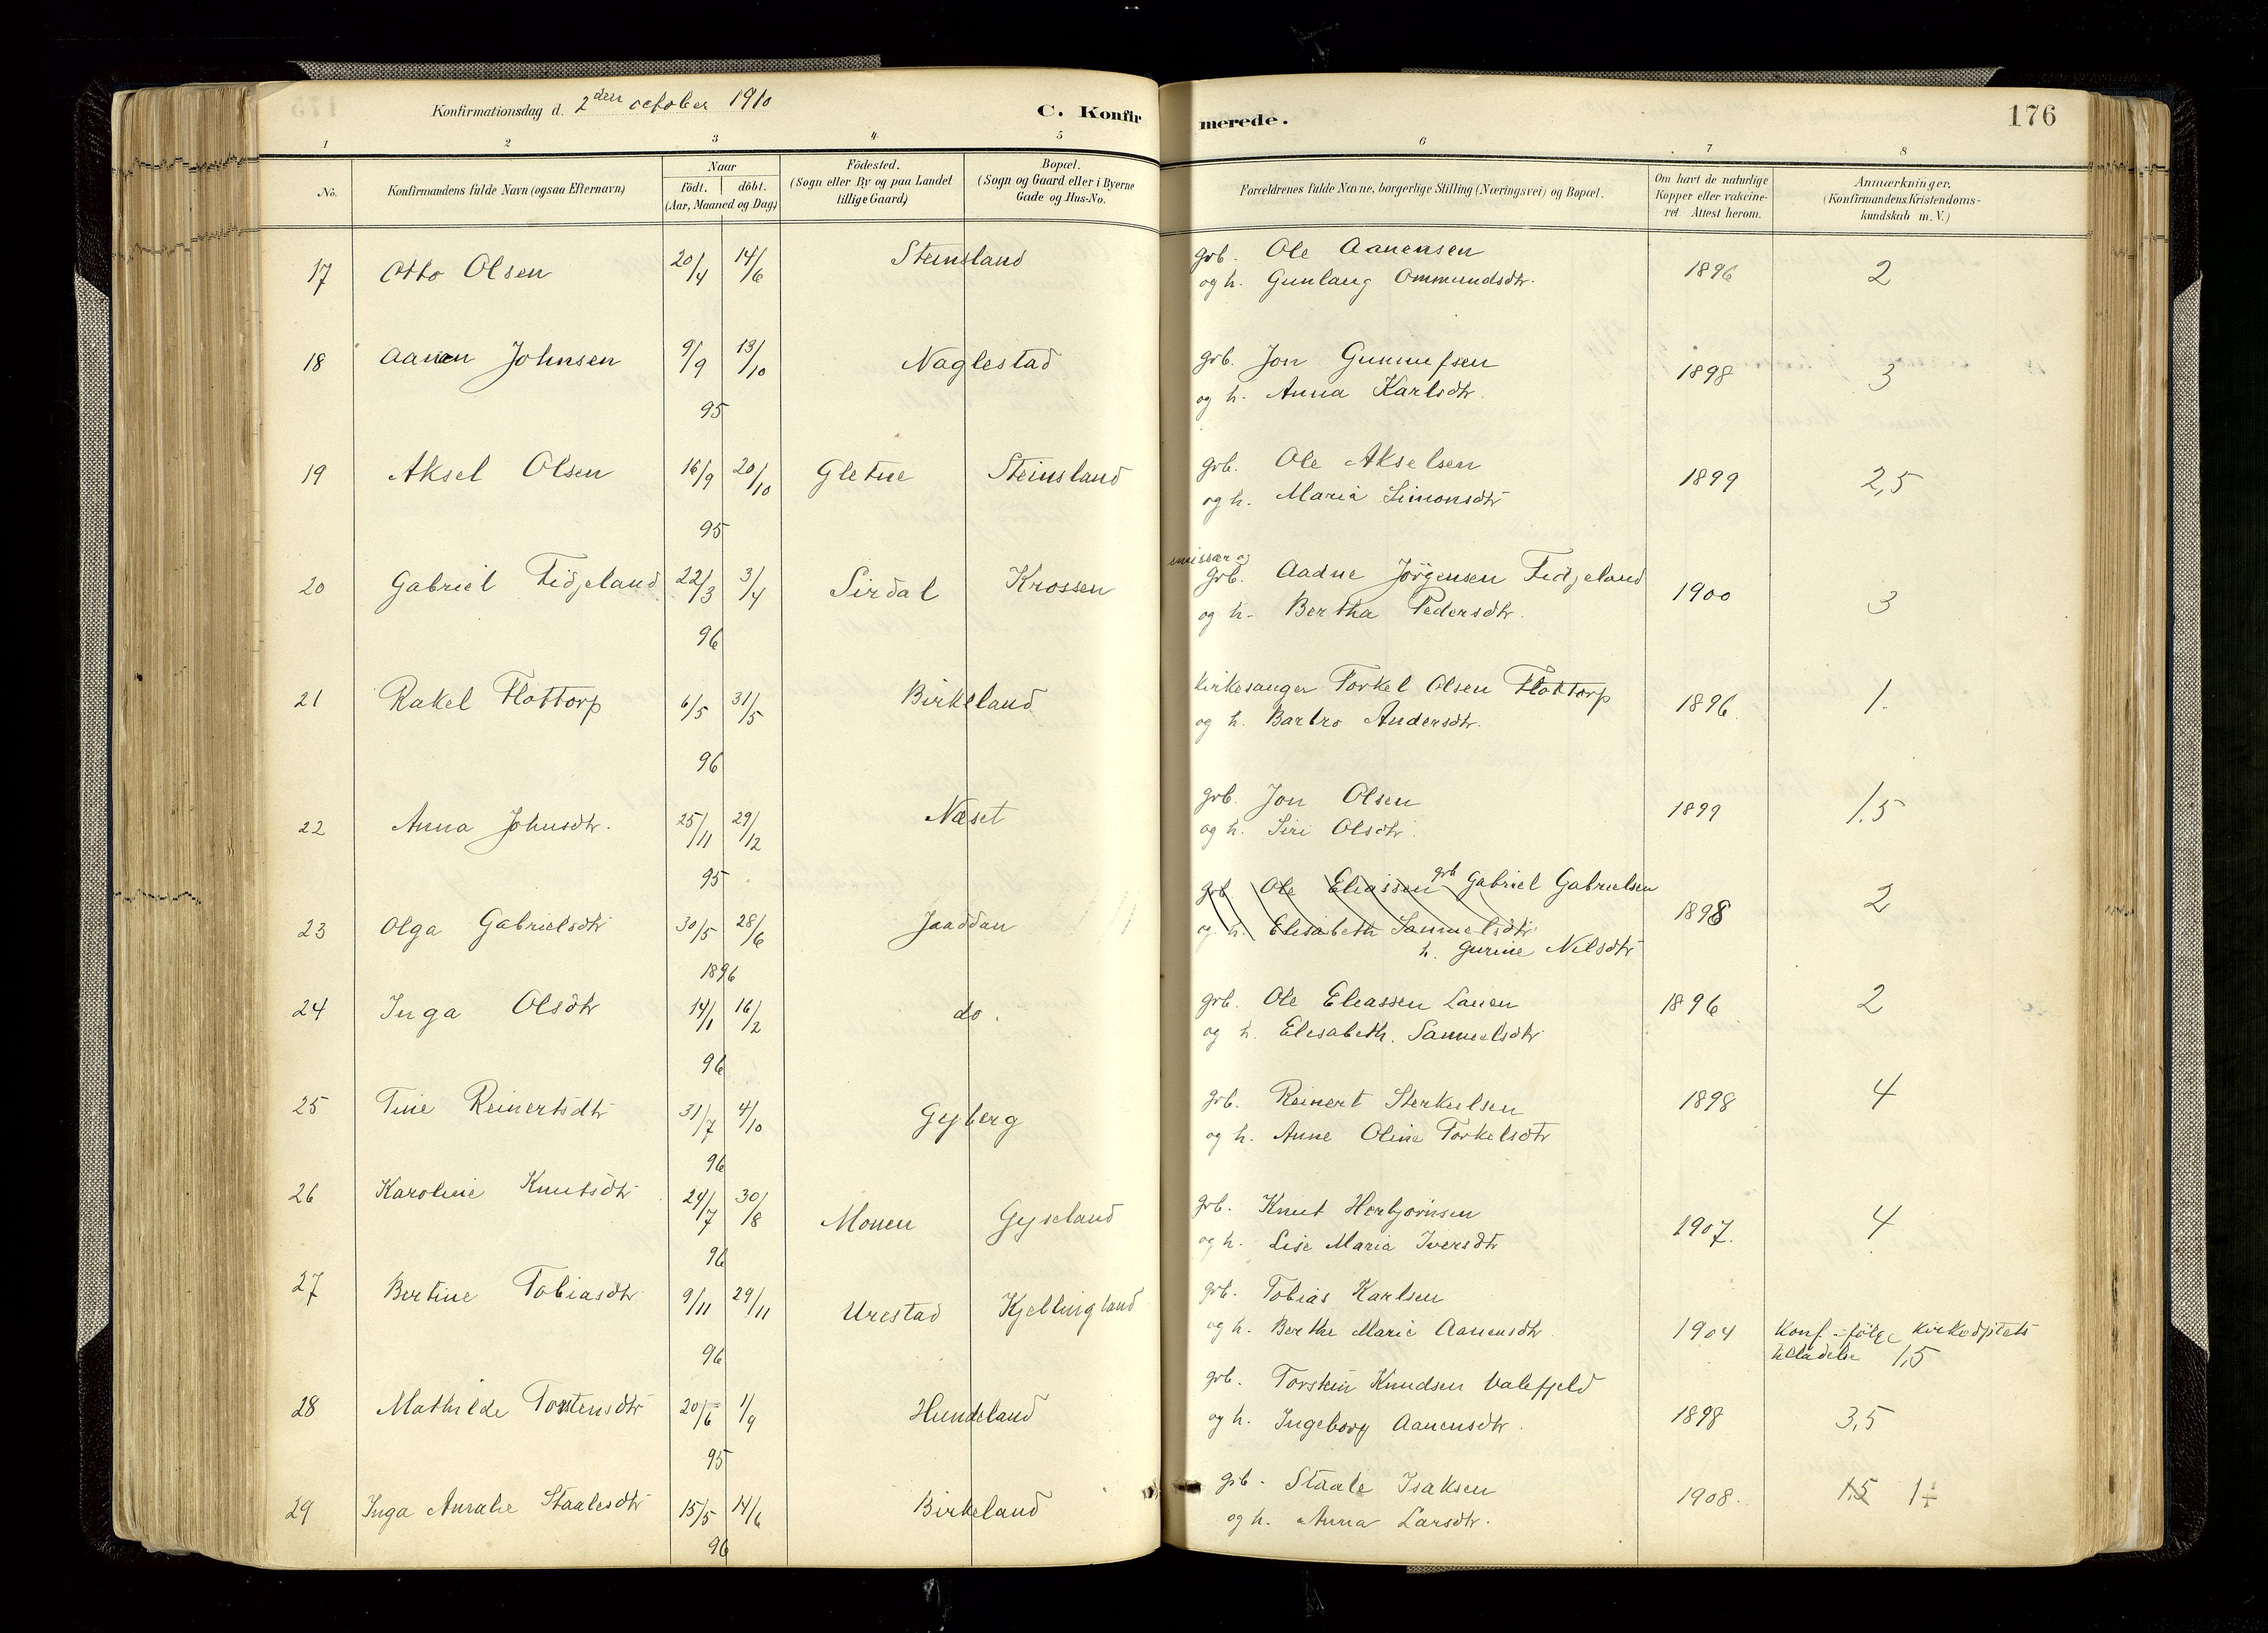 Konfirmationsdag d. 2den october 1910
C. Konfirmerede.
176
1 2 3 4 5 6 7 8
No.
Konfirmandens fulde Navn (ogsaa Efternavn)
Naar
födt. döbt.
(Aar, Maaned og Dag)
Födested.
(Sogn eller By og paa Landet
tillige Gaard)
Bopæl.
(Sogn og Gaard eller i Byerne
Gade og Hus-No.
Forældrenes fulde Navne, borgerlige Stilling (Næringsvei) og Bopæl.
Om havt de naturlige
Kopper eller vakcine-
ret. Attest herom.
Anmærkninger.
(Konfirmandens Kristendoms-
kundskab m. V.)
17 Otto Olsen 20/4 14/6 Steinsland grb. Ole Aanensen 1896 2
og h. Gunlaug Ommundsdtr.
18 Aanen Johnsen 9/9 13/10 Naglestad grb. Jon Gunnufsen 1898 3
95 og h. Anna Karlsdtr.
19 Aksel Olsen 16/9 20/10 Gletne Steinsland grb. Ole Akselsen 1899 2,5
95 og h. Maria Simonsdtr
20 Gabriel Fidjeland 22/3 3/4 Sirdal Krossen emissær og
grb. Aadne Jörgensen Fidjeland 1900 3
96 og h. Bertha Pedersdtr.
21 Rakel Flottorp 6/5 31/5 Birkeland Kirkesanger Torkel Olsen Flottorp 1896. 1.
96 og h. Barbro Andersdtr.
22 Anna Johnsdtr. 25/11 29/12 Næset grb. Jon Olsen 1899 1.5
95 og h. Siri Olsdtr.
23 Olga Gabrielsdtr 30/5 28/6 Jaaddan grb Ole Eliassen grb Gabriel Gabrielsen 1898 2
1896 og h. Elisabeth Samuelsdtr.
h. Gurine Nilsdtr
24 Inga Olsdtr 14/1 16/2 do. grb. Ole Eliassen 1896 2
96 og h. Elisabeth. Samuelsdtr
25 Tine Reinertsdtr 31/7 4/10 Gyberg grb. Reinert Sterkulsen 1898 4
96 og h. Anne Oline Torkelsdtr
26 Karoline Knutsdtr 24/7 30/8 Monen Gyseland grb. Knut Herbjørnsen 1907. 4
96 og h. Lise Maria Iversdtr
27 Bertine Tobiasdtr 9/11 29/11 Urestad Kjellingland grb. Tobias Karlsen
96 og h. Berthe Marie Aanensdtr. 1904 Konf. ifölge kirkedptets
tilladelse 1,5
28 Mathilde Torstensdtr 20/6 1/9 Hundeland grb. Torstein Knudsen Valefjeld 1898 3,5
95 og h. Ingeborg Aanensdtr.
29 Inga Amalie Staalesdtr 15/5 14/6 Birkeland grb. Staale Isaksen 1908. 1.5 1÷
96 og h. Anna Larsdtr.